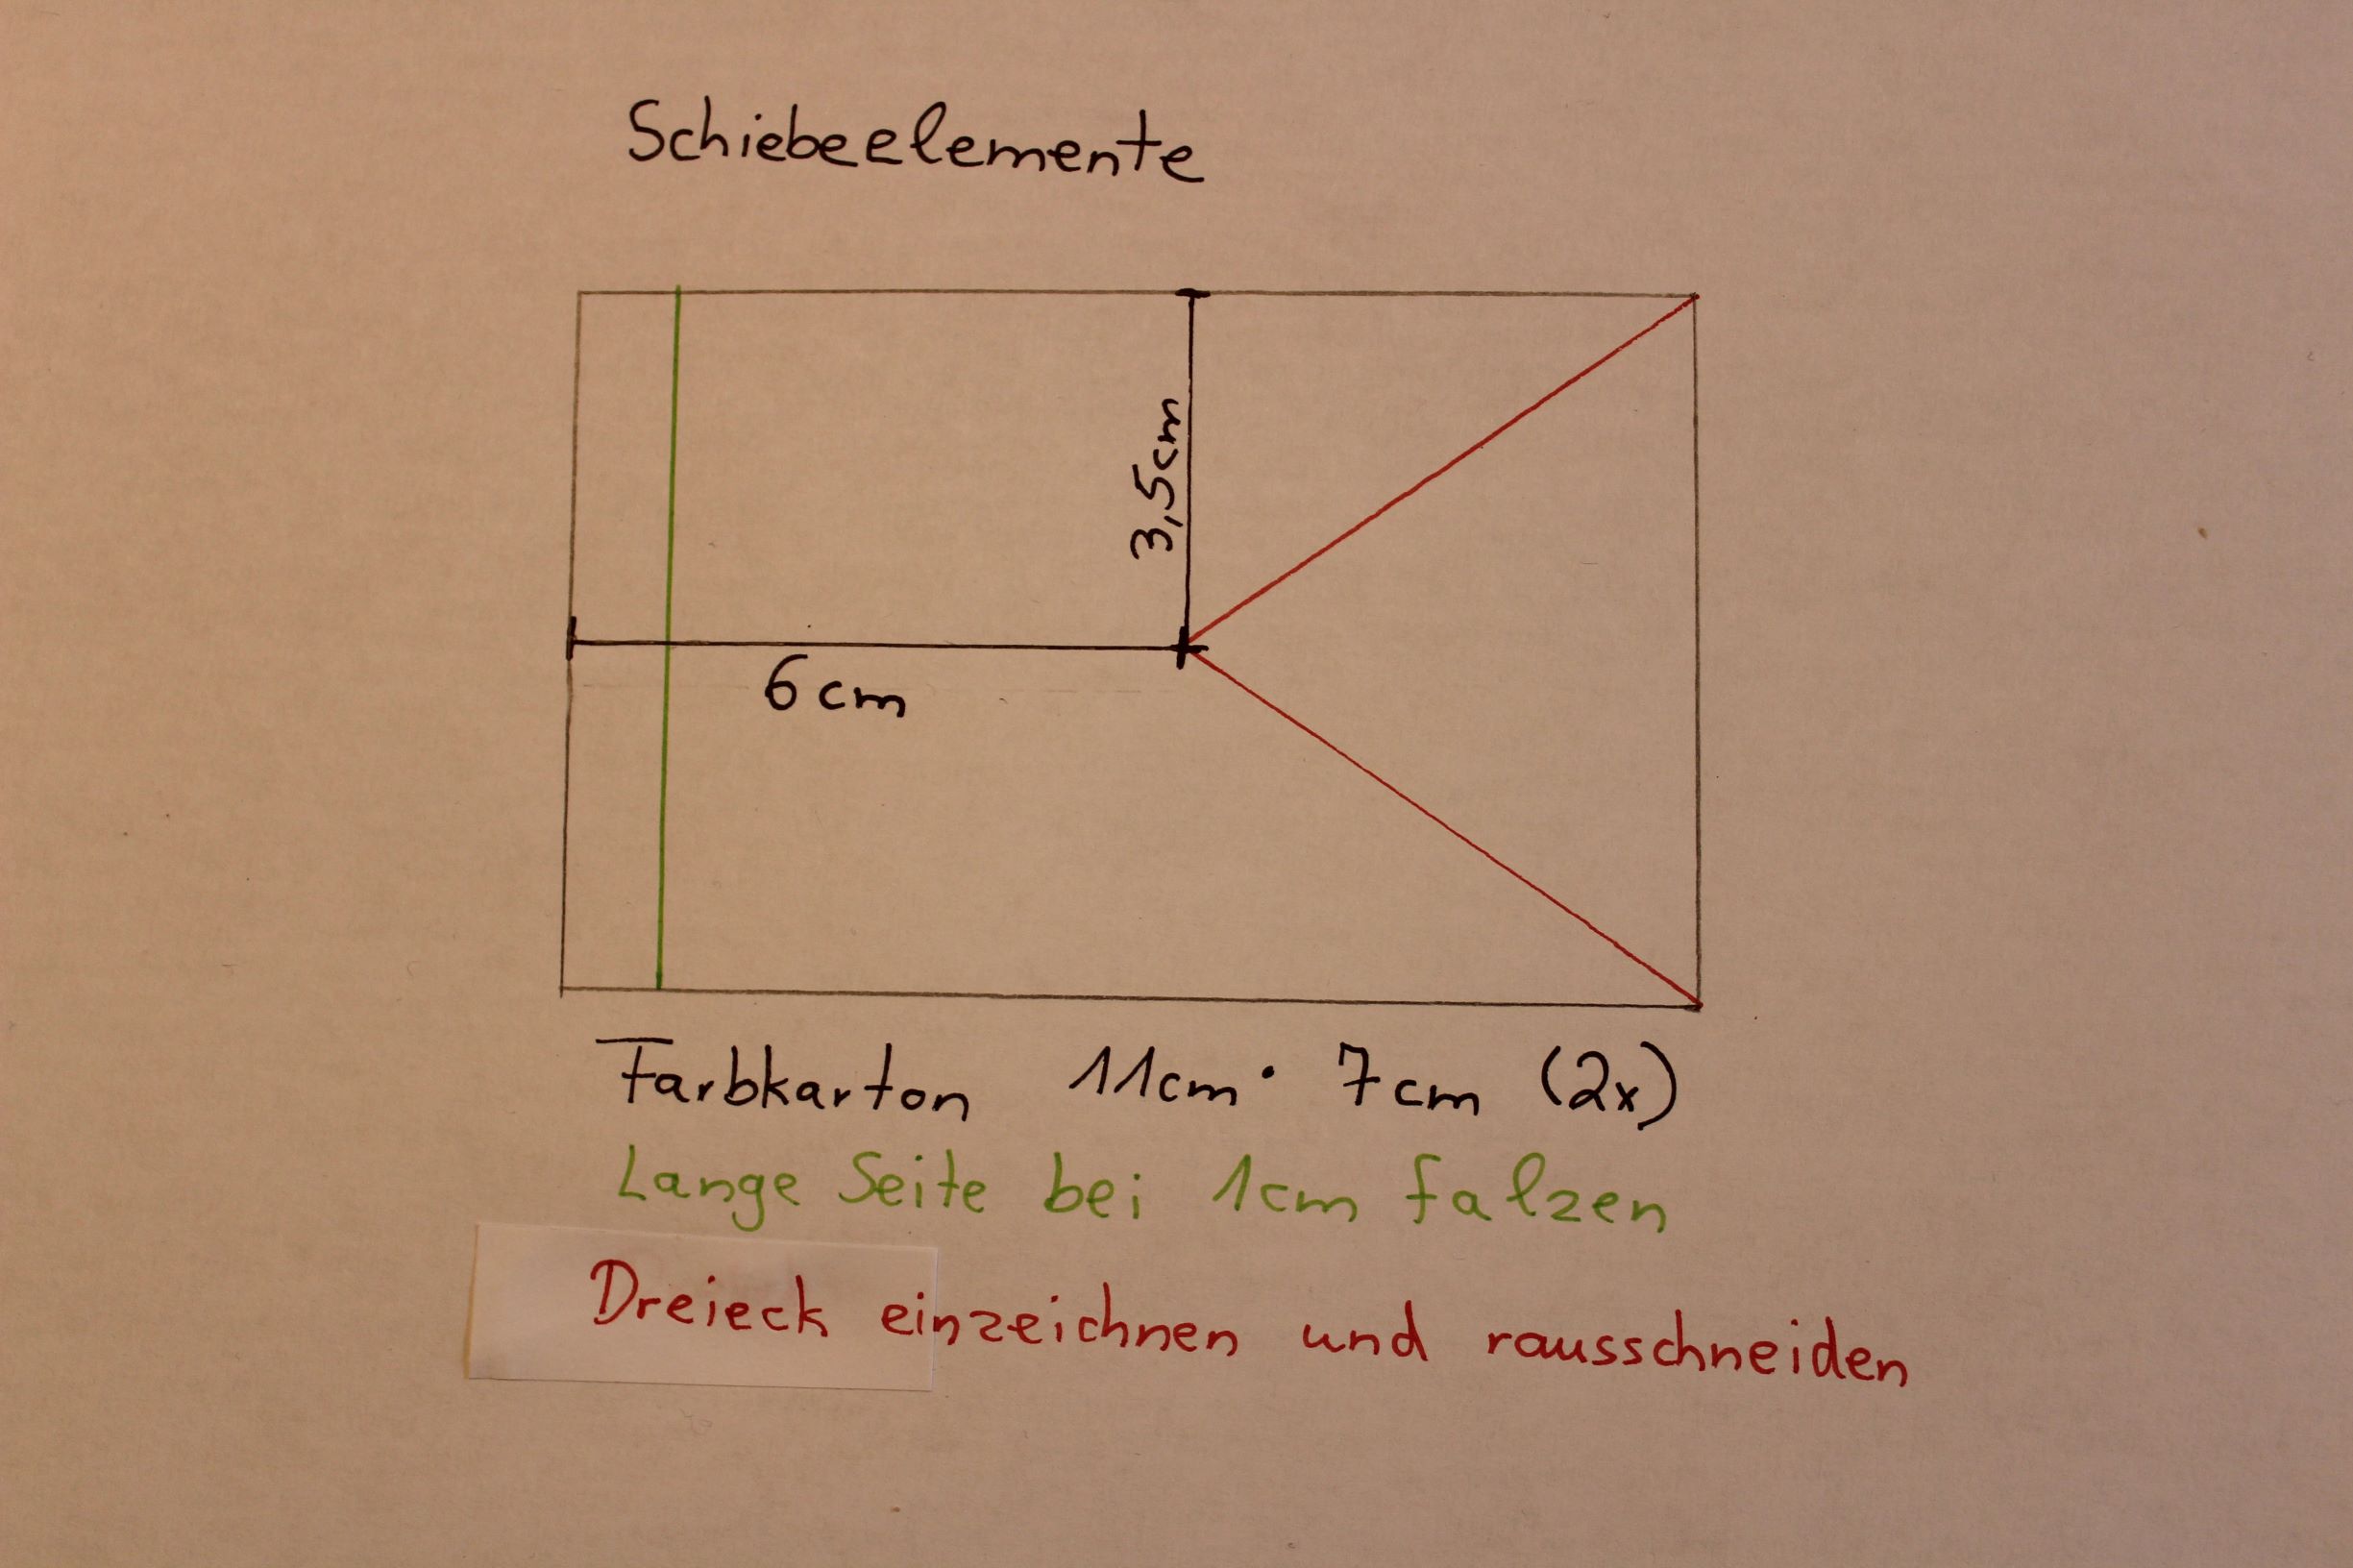 Schiebeelemente
3,5cm
6cm
Farbkarton 11cm · 7cm (2x)
Lange Seite bei 1cm falzen
Dreieck einzeichnen und rausschneiden